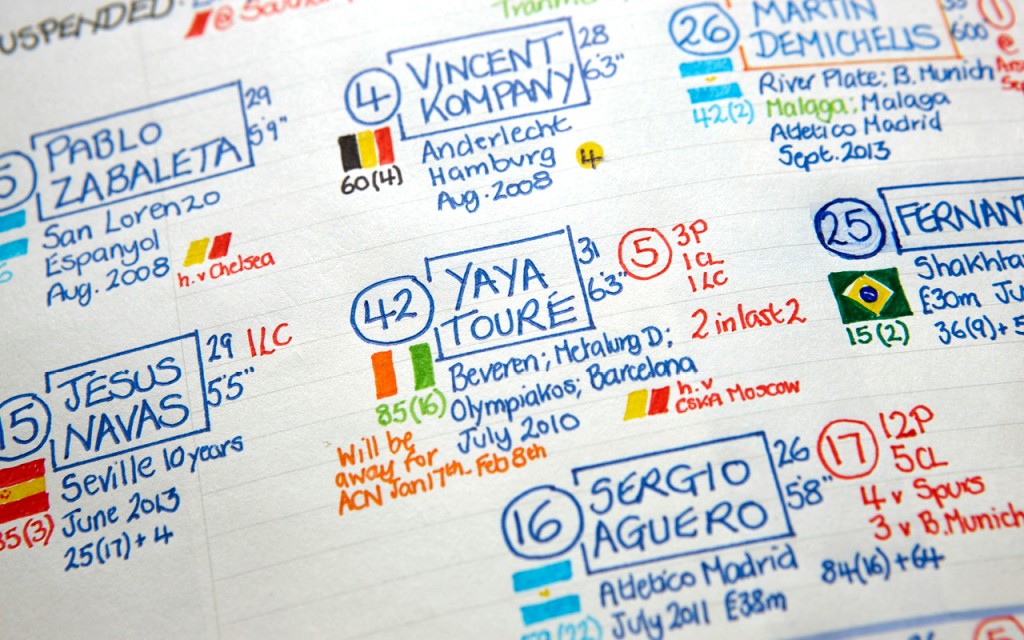 SUSPENDED:
@ Southam
Tranmere
5
PABLO
ZABALETA
29
5'9"
San Lorenzo
Espanyol
Aug. 2008
h.v Chelsea
4
VINCENT
KOMPANY
28
6'3"
60(4)
Anderlecht
Hamburg
Aug. 2008
4
26
MARTIN
DEMICHELIS
600
42(2)
River Plate; B.Munich
Malaga; Malaga
Atletico Madrid
Sept. 2013
1
@
25
FERNAN
15(2)
Shakhta
£30m Ju
36(9)+5
42
YAYA
TOURÉ
31
6'3"
5
3P
1CL
1LC
2 in last 2
85(16)
Beveren; Metalurg D;
Olympiakos; Barcelona
July 2010
h.v
CSKA Moscow
Will be
away for
ACN Jan 17th - Feb 8th
15
JESUS
NAVAS
29
1LC
5'5"
35(3)
Seville 10 years
June 2013
25(17)+4
16
SERGIO
AGUERO
26
5'8"
17
12P
5CL
4 v Spurs
3 v B.Munich
Atletico Madrid
July 2011 £38m
84(16)+64